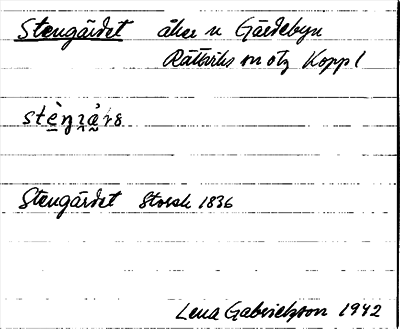 Stengärdet åker n Gärdebyn
Rättviks sn o tg Koppl
Stengärdet Storsk 1836
Lena Gabrielsson 1942